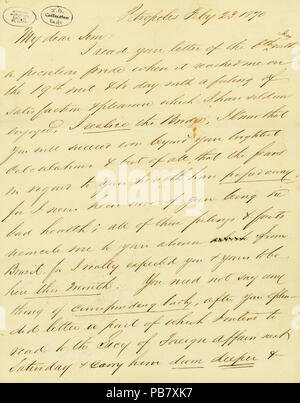 J.B. Collection Eads
Petropolis Feby 23 1870
My dear Son.
I read your letter of the 6th with
a peculiar pride when it reached me on
the 19th inst & to day with a feeling of
satisfaction & pleasure which I have seldom
enjoyed. I realize the Bridge. I know that
you will succeed even beyond your brightest
calculations & best of all, that the fears
in regard to your health have passed away.
for I never hear now of your being in
bad health; all of these feelings & facts
reconcile me to your absence from
Board, for I really expected you & yours to be
here this month. You need not say any
thing of corresponding lady, after your
did letter a part of which I intend to
read to the Secy of Foreign Affairs next
Saturday & carry him down deeper &
alamy stock photo